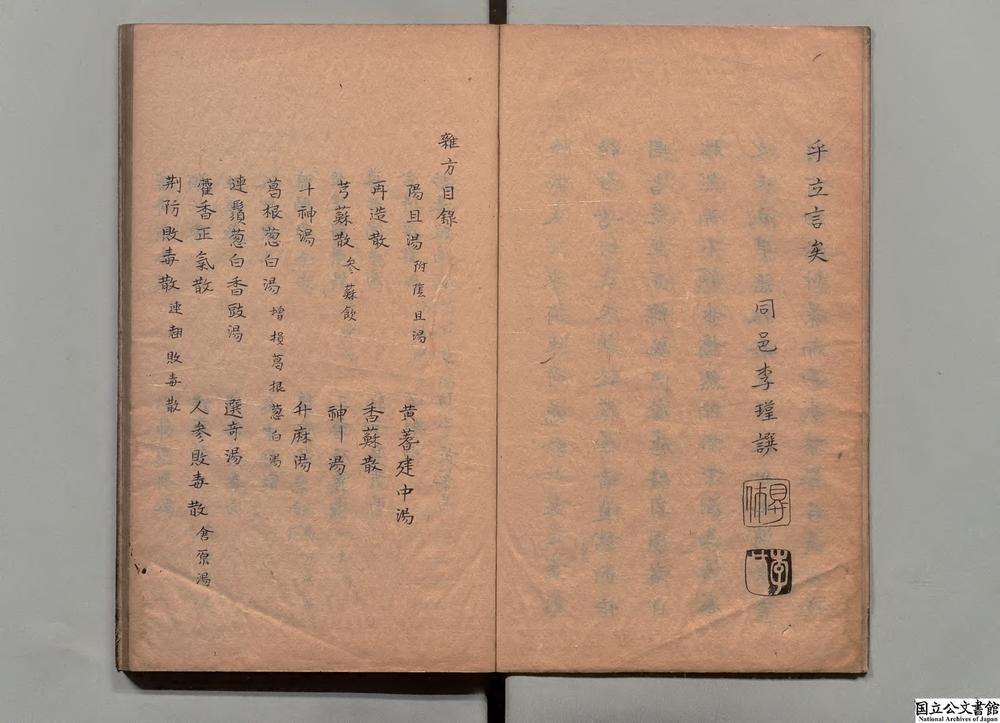 乎立言矣
同邑李瑆譔
雜方目錄
陽旦湯 附陰旦湯
黄蓍建中湯
再造散
香蘇散
芎蘇散 參蘇飲
神朮湯
十神湯
升麻湯
葛根葱白湯 增損葛根葱白湯
連鬚葱白香豉湯
選奇湯
藿香正氣散
人參敗毒散 倉廩湯
荆防敗毒散 連翹敗毒散
国立公文書館
National Archives of Japan